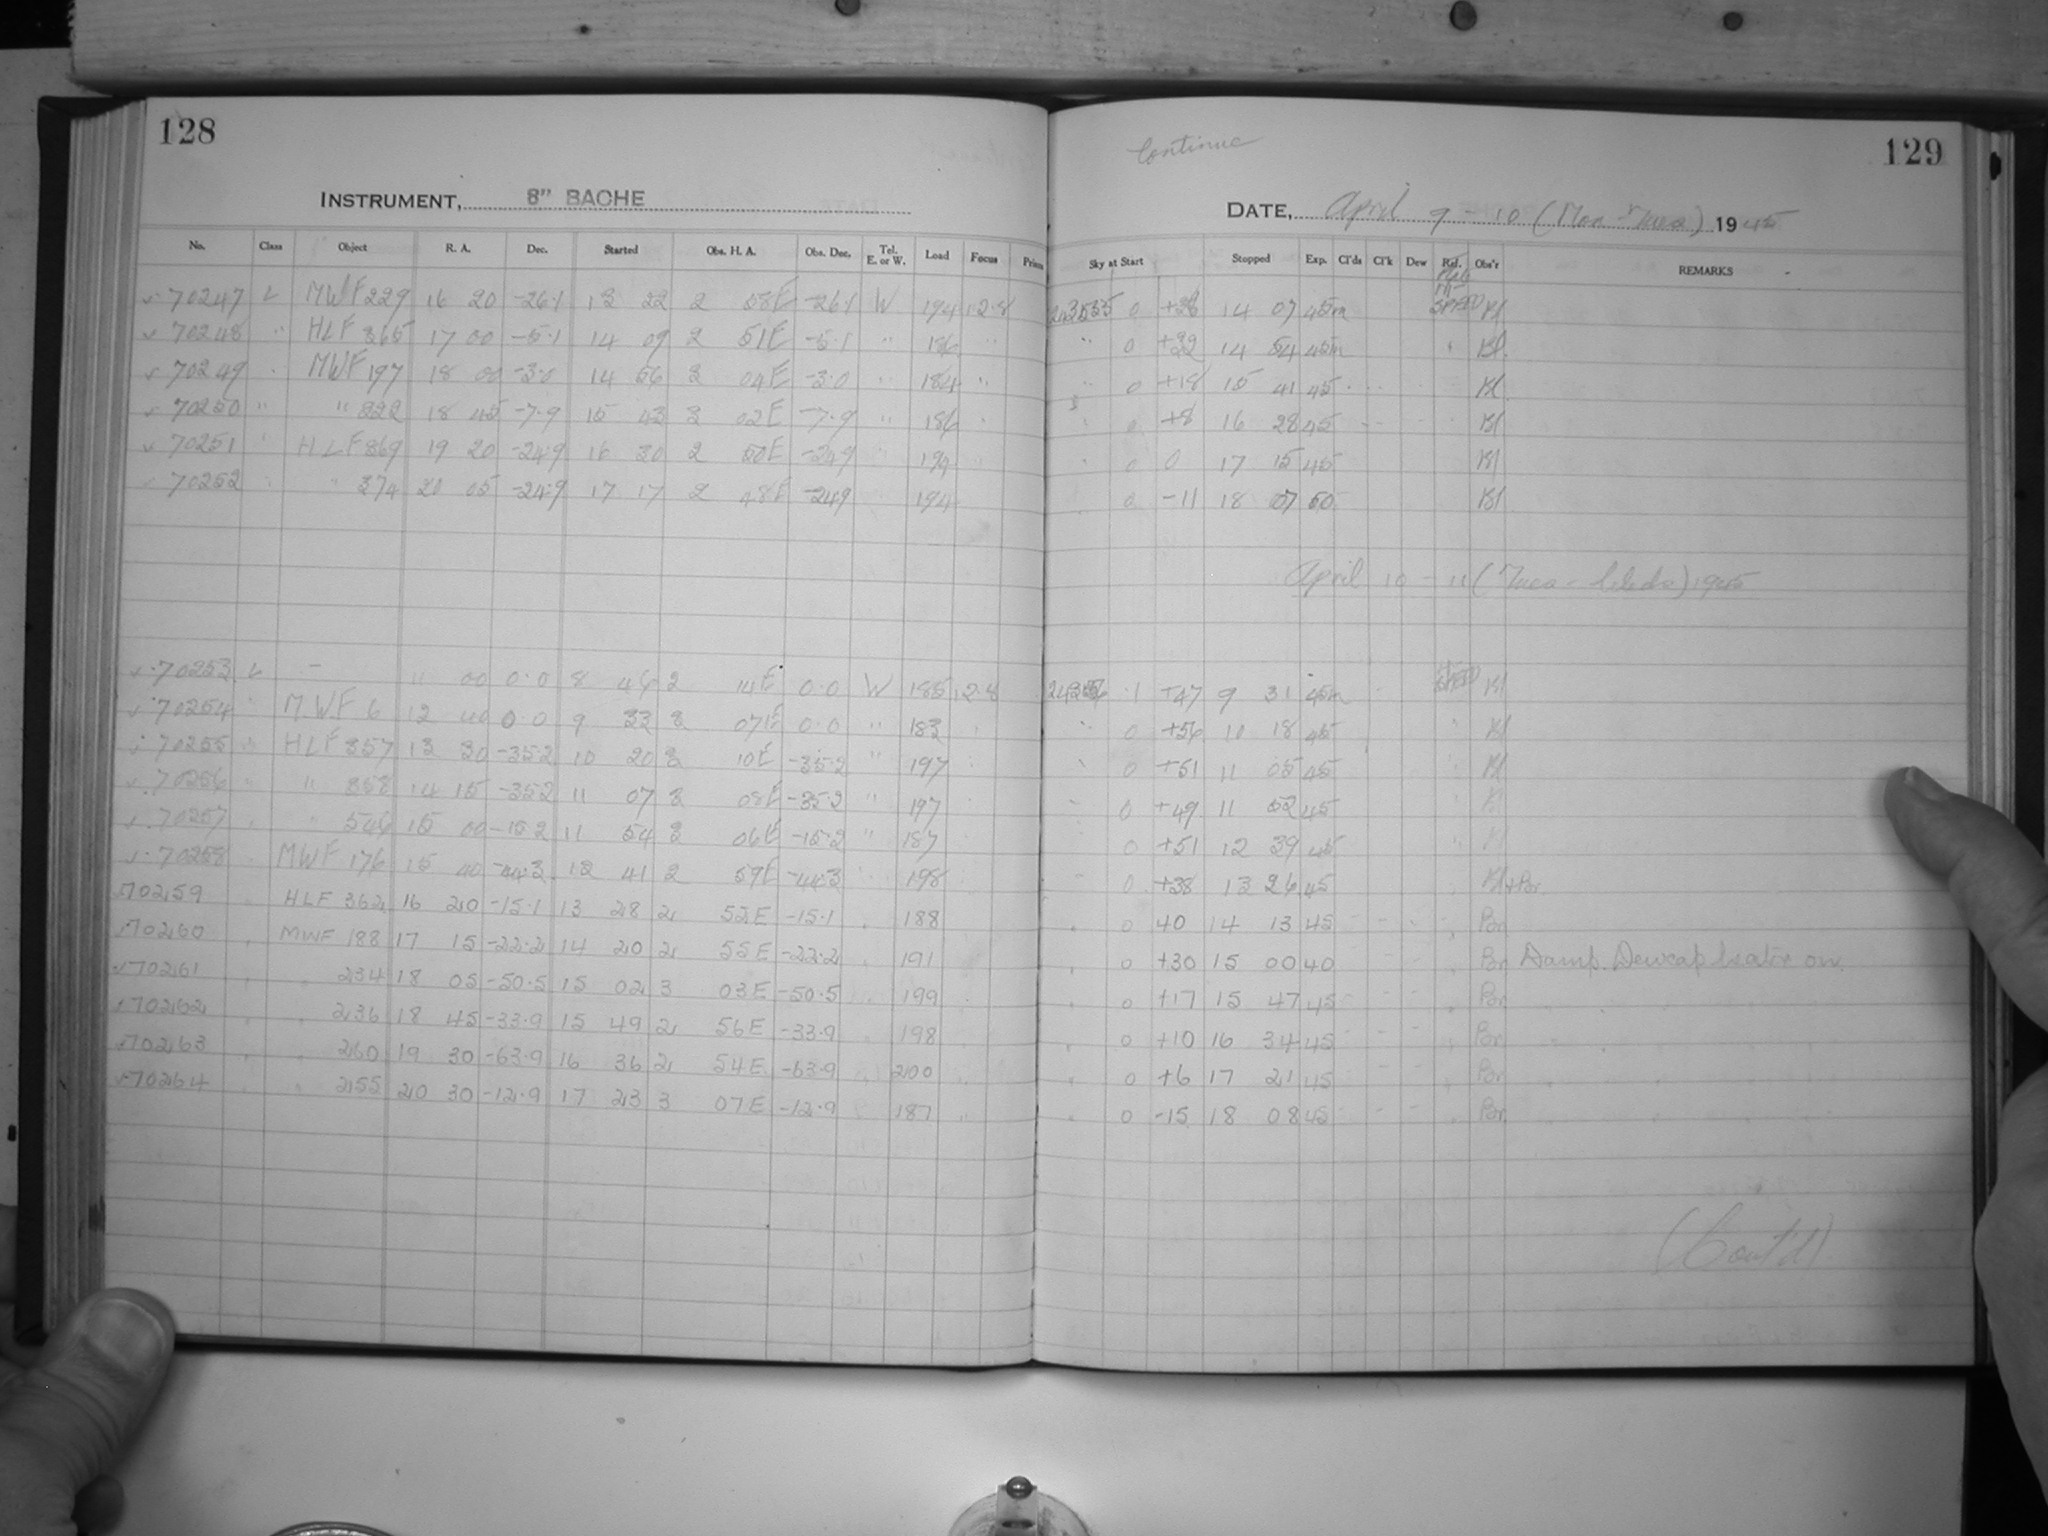 128
INSTRUMENT, 8" BACHE
No. Class Object R. A. Dec. Started Obs. H. A. Obs. Dec. Tel. E. or W. Load Focus
70247 L MWF 229 16 20 -26.1 13 22 2 58E -26.1 W 194 12.8
70248 " HLF 365 17 00 -5.1 14 09 2 51E -5.1 " 186 "
70249 MWF 197 18 00 -3.0 14 56 3 04E -3.0 " 184 "
70250 " " 322 18 45 -7.9 15 43 3 02E -7.9 " 186
70251 HLF 369 19 20 -24.9 16 30 2 50E -24.9 194
70252 " 374 20 05 -24.9 17 17 2 48E -24.9 194
70253 L - 11 00 0.0 8 46 2 14E 0.0 W 185 12.8
70254 M.W.F 6 12 40 0.0 9 33 3 07E 0.0 " 183
70255 HLF 357 13 30 -35.2 10 20 3 10E -35.2 " 197
70256 " 358 14 15 -35.2 11 07 3 08E -35.2 " 197
70257 " 546 15 00 -15.2 11 54 3 06E -15.2 " 187
70258 MWF 176 15 40 -44.3 12 41 2 59E -44.3 198
70259 HLF 362 16 20 -15.1 13 28 2 52E -15.1 188
70260 MWF 188 17 15 -22.2 14 20 2 55E -22.2 191
70261 234 18 05 -50.5 15 02 3 03E -50.5 199
70262 236 18 45 -33.9 15 49 2 56E -33.9 198
70263 260 19 30 -63.9 16 36 2 54E -63.9 200
70264 255 20 30 -12.9 17 23 3 07E -12.9 187
Continue
129
DATE, April 9 - 10 (Mon - Tues) 1945
Sky at Start Stopped Exp. Cl'ds Cl'k Dew Ref. Obs'r REMARKS
0 14 07 45m SPEED Bl
" 0 +32 14 54 45m Bl
" 0 +18 15 41 45 Bl
0 +8 16 28 45 Bl
0 0 17 15 45 Bl
0 -11 18 07 50 Bl
April 10 - 11 (Tues - Weds) 1945
1 +47 9 31 45m SPEED Bl
" 0 +56 10 18 45 " Bl
0 +51 11 05 45 Bl
0 +49 11 52 45 Bl
0 +51 12 39 45 Bl
0 +38 13 26 45 Bl+Par
0 40 14 13 45 Par
0 +30 15 00 40 Par Damp. Dewcap heater on
0 +17 15 47 45 Par
0 +10 16 34 45 Par
0 +6 17 21 45 Par
0 -15 18 08 45 Par
(Cont'd)